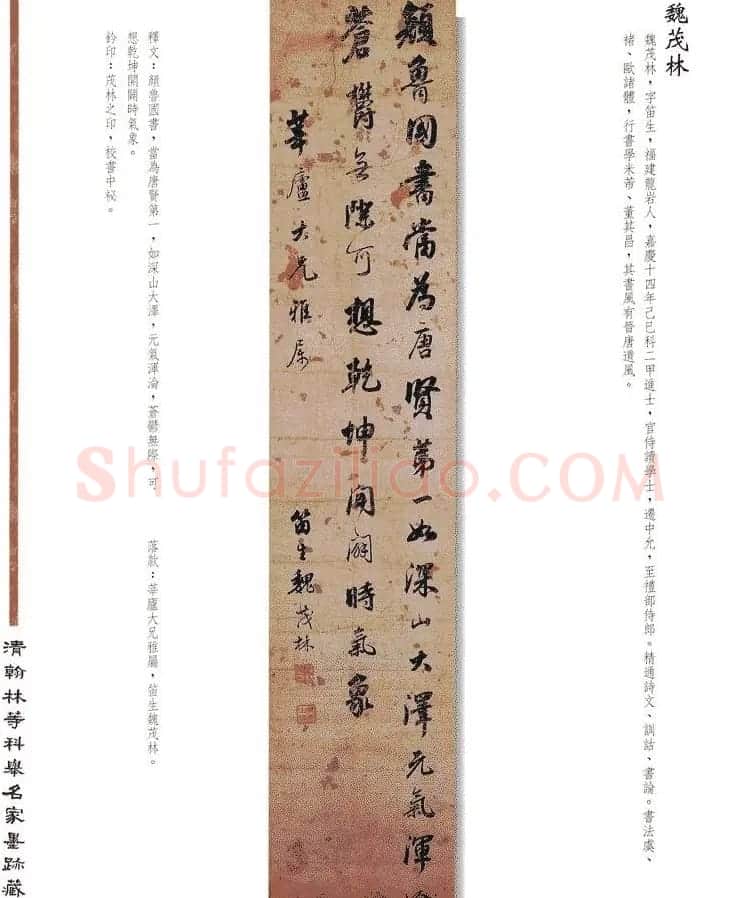 魏茂林
魏茂林，字笛生，福建龍岩人，嘉慶十四年己巳科二甲進士，官侍讀學士，遷中允，至禮部侍郎。精通詩文、訓詁、書論。書法虞、
褚、歐諸體，行書學米芾、董其昌，其書風有晉唐遒風。
顏魯國書當為唐賢第一如深山大澤元氣渾
蒼鬱無際可想乾坤開闢時氣象
華廬大兄雅屬
笛生魏茂林
釋文：顏魯國書，當為唐賢第一，如深山大澤，元氣渾淪，蒼鬱無際，可
想乾坤開闢時氣象。
落款：華廬大兄雅屬，笛生魏茂林。
鈐印：茂林之印，校書中祕。
清翰林等科舉名家墨跡藏
Shufaziliao.COM